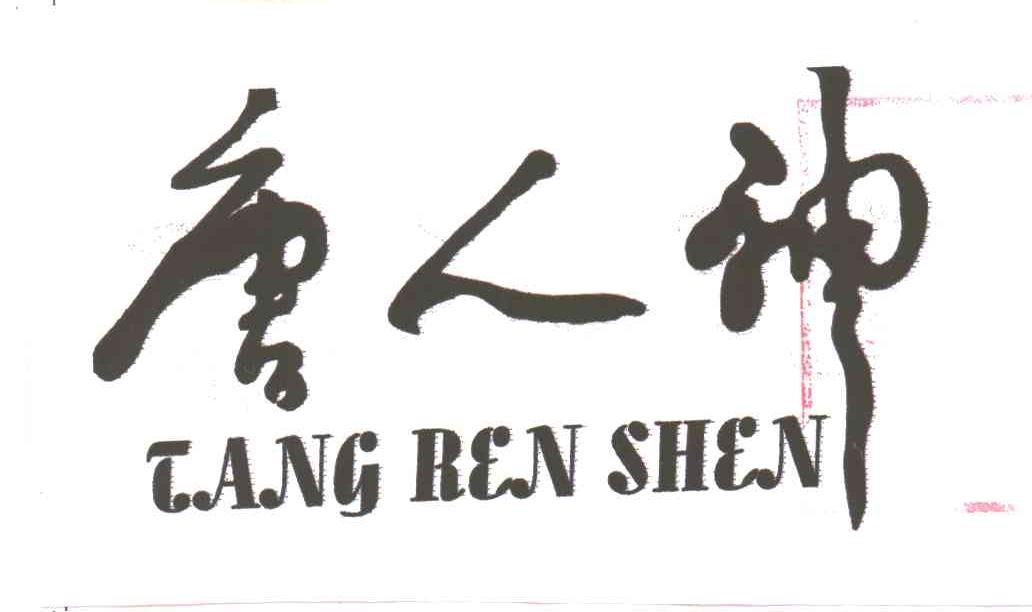 唐人神
TANG REN SHEN